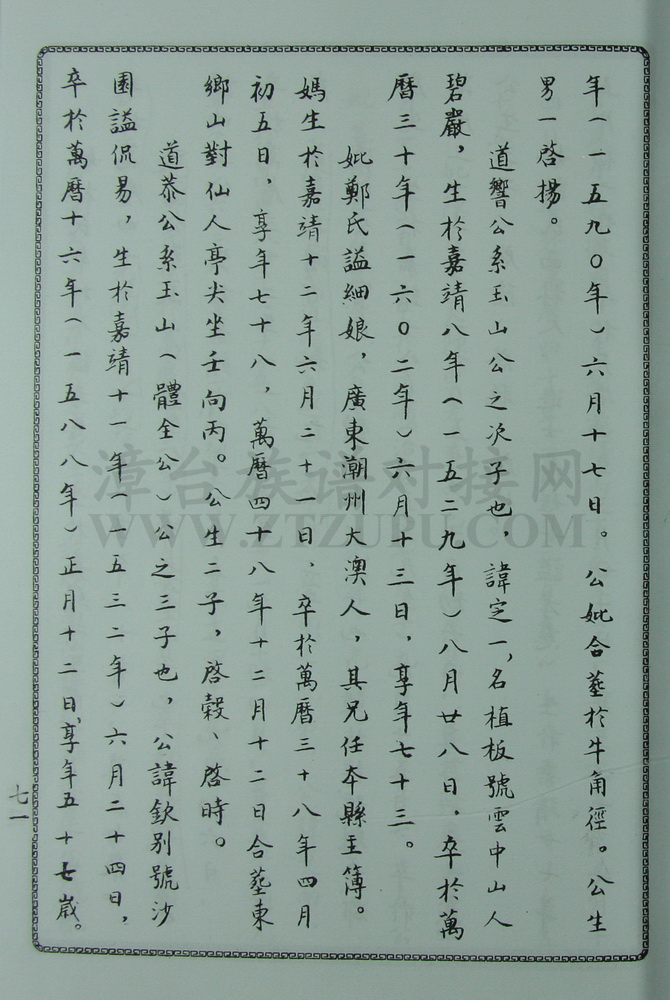 年(一五九〇年)六月十七日。公妣合塟於牛角徑。公生
男一啓揚。
道響公系玉山公之次子也，諱定一，名植板號雲中山人
碧巖，生於嘉靖八年(一五二九年)八月廿八日，卒於萬
曆三十年(一六〇二年)六月十三日，享年七十三。
妣鄭氏謚細娘，廣東潮州大澳人，其兄任本縣主簿。
媽生於嘉靖十二年六月二十一日，卒於萬曆三十八年四月
初五日，享年七十八，萬曆四十八年十二月十二日合塟東
鄉山對仙人亭尖坐壬向丙。公生二子，啓穀、啓時。
道恭公系玉山(體全公)公之三子也，公諱欽別號沙
園謚侃易，生於嘉靖十一年(一五三二年)六月二十四日，
卒於萬曆十六年(一五八八年)正月十二日，享年五十七歲。
七一
漳台族谱对接网
WWW.ZTZUPU.COM